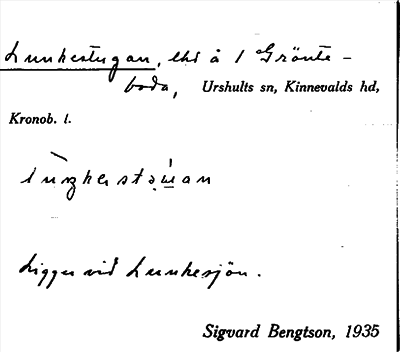 Lunkestugan, lht å 1 Grönte-
boda, Urshults sn, Kinnevalds hd,
Kronob. l.
Ligger vid Lunkesjön.
Sigvard Bengtson, 1935